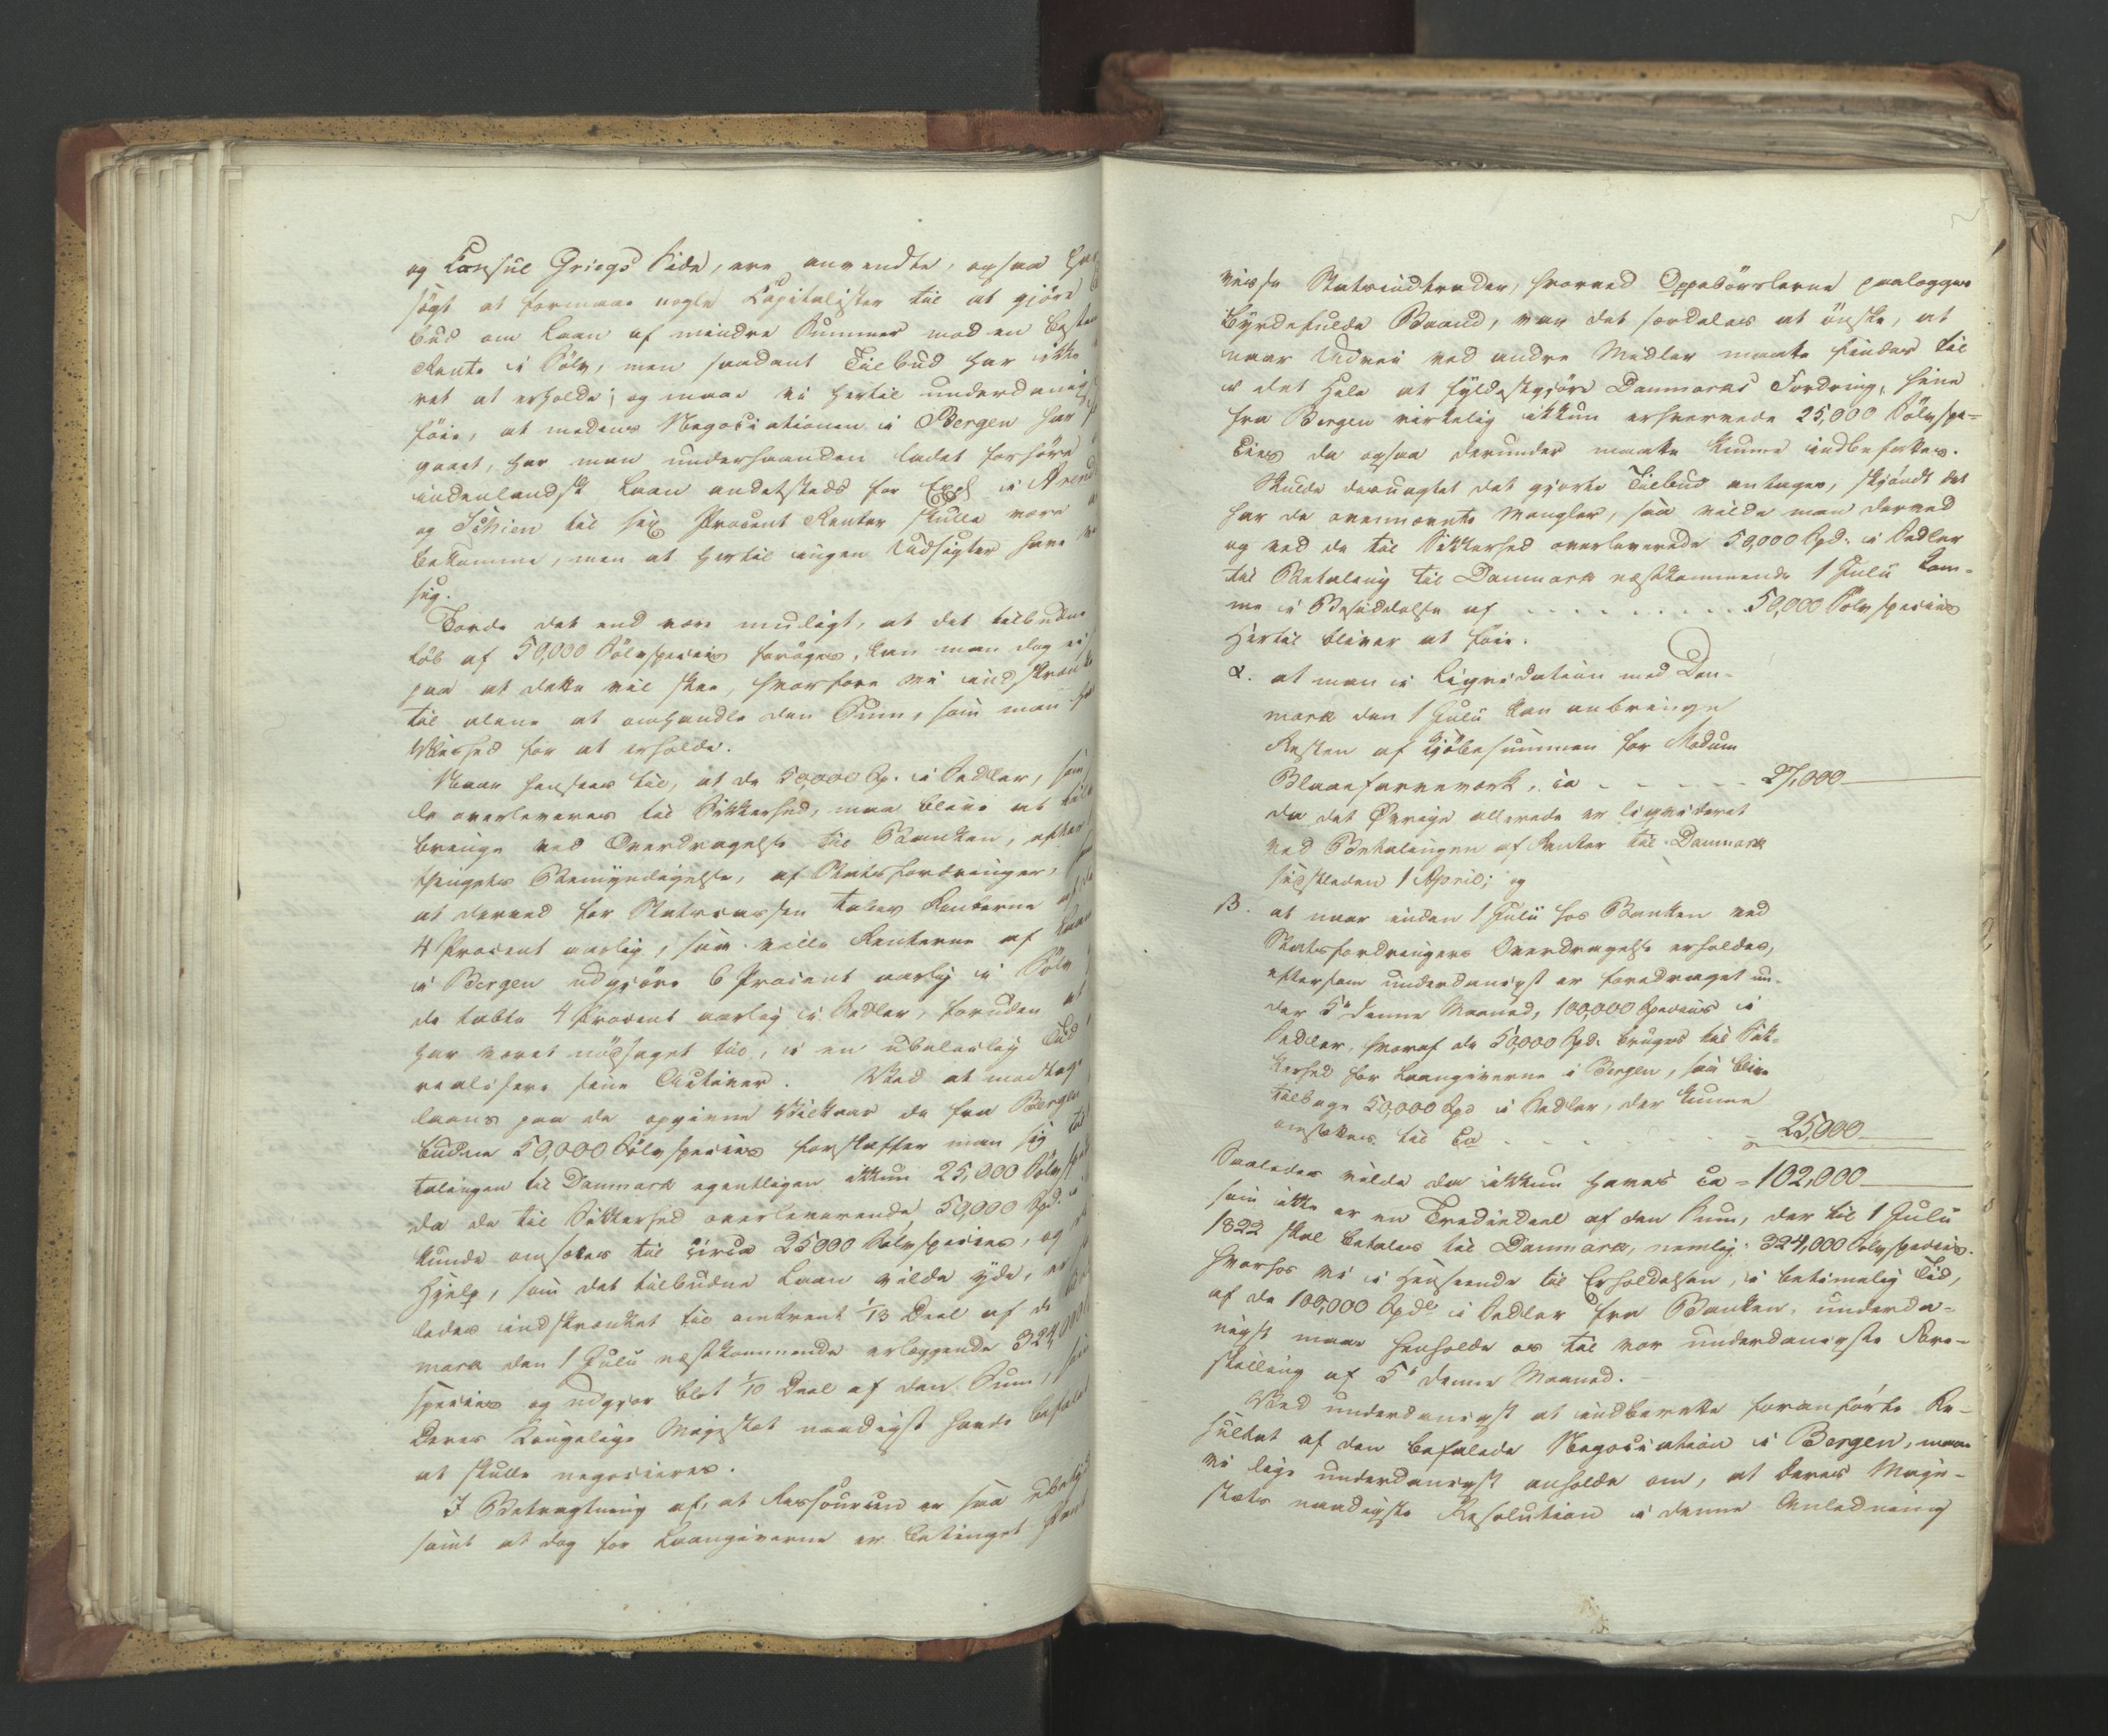 og Consul Griegs Side, ere anvendte, ogsaa
søgt at formaae nogle Capitalister til at gjøre
bud om Laan af mindre Summer mod en
Rente i Sölv, men saadant Tilbud har ikke
vet at erholde; og maae vi hertil underdanig
föie, at medens Negociationen i Bergen har
gaaet, har man underhaanden ladet forhöre
indenlandsk Laan andetsteds for Expl i
og Schien til sex Procent Renter skulle være
bekomme, men at hertil ingen Udsigter have
sig.
Torde det end være muligt, at det tilbudne
löb af 50,000 Sölvspecies foröges, kan man dog ei
paa at dette vil skee, hvorfore vi indskrænke
til alene at omhandle den Sum, som man
Vished for at erholde.
Naar hensees til, at de 50,000 Sp. i Sedler, som
de overleveres til Sikkerhed, maa blive at
bringe ved Overdragelse til Banken, efter
thingets Bemyndigelse, af Statsfordringer,
at derved for Statscassen tabes Renterne af
4 Procent aarlig, saa ville Renterne af
i Bergen udgjöre 6 Procent aarlig i Sölv
de tabte 4 Procent aarlig i Sedler, foruden at
har været nödsaget til, i en ubeleilig Tid
realisere sine Activer. Ved at modtage
laans paa de opgivne Vilkaar de fra Bergen
budne 50,000 Sölvspecies forskaffer man sig til
talingen til Danmark egentligen ikkun 25,000
da de til Sikkerhed overleverende 50,000 Spd. i
kunde omsættes til circa 25000 Sölvspecies, og
Hjelp, som det tilbudne Laan vilde yde, er
ledes indskrænket til omtrent 1/13 Deel af de
mark den 1 Julii næstkommende erlæggende 324,000
species og udgjør blot 1/10 Deel af den Sum,
Deres Kongelige Majestæt naadigst havde befalet
at skulle negocieres.
I Betragtning af, at Ressourcen er saa
samt at dog for Laangiverne er betinget
visse Statsindtægter, hvorved Oppebörslerne paalægges
byrdefulde Baand, var det særdeles at önske, at
naar Udvei ved andre Midler maatte findes til
i det Hele at fyldestgjöre Danmarks Fordring, hine
fra Bergen virkelig ikkun erhvervede 25,000 Sölvspe-
cies da ogsaa derunder maatte kunne indbefattes.
Skulde desuagtet det gjorte Tilbud antages, skjöndt det
har de ovennævnte Mangler, saa vilde man derved
og ved de til Sikkerhed overleverede 50,000 Spd. i Sedler
til Betaling til Danmark næstkommende 1 Julii kom-
me i Besiddelse af . . . . . . . . . 50,000 Sölvspecies
Hertil bliver at föie.
α. at man i Liqvidation med Dan-
mark den 1 Julii kan anbringe
Resten af Kjöbesummen for Modum
Blaafarveværk, ca . . . . . 27,000
da det Övrige allerede er liqvideret
ved Betalingen af Renter til Danmark
sidstleden 1 April; og
β. at naar inden 1 Julii hos Banken ved
Statsfordringers Overdragelse erholdes,
eftersom underdanigst er foredraget un-
der 5te denne Maaned, 100,000 Species i
Sedler, hvoraf de 50,000 Spd. bruges til Sik-
kerhed for Laangiverne i Bergen, saa blive
tilbage 50,000 Spd i Sedler, der kunne
omsættes til ca . . . . . . 25,000
Saaledes vilde da ikkun haves ca = 102,000
som ikke er en Trediedeel af den Sum, der til 1 Julii
1822 skal betales til Danmark, nemlig: 324,000 Sölvspecies.
hvorfor vi i Henseende til Erholdelsen, i betimelig Tid,
af de 100,000 Spdlr i Sedler fra Banken, underda-
nigst maae henholde os til vor underdanigste Fore-
stilling af 5te denne Maaned.
Ved underdanigst at indberette foranförte Re-
sultat af den befalede Negociation i Bergen, maae
vi lige underdanigst anholde om, at Deres Maje-
stæts naadigste Resolution i denne Anledning